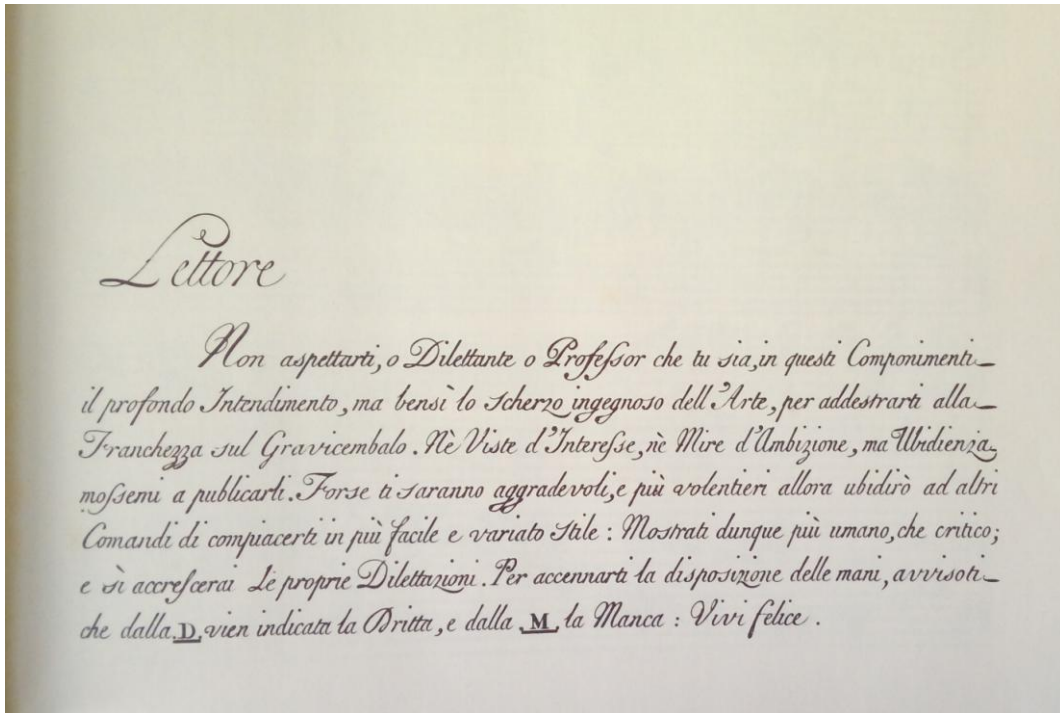 Lettore
Non aspettarti, o Dilettante o Professor che tu sia, in questi Componimenti
il profondo Intendimento, ma bensì lo scherzo ingegnoso dell'Arte, per addestrarti alla
Franchezza sul Gravicembalo. Nè Viste d'Interesse, nè Mire d'Ambizione, ma Ubidienza
mossemi a publicarli. Forse ti saranno aggradevoli, e più volentieri allora ubidirò ad altri
Comandi di compiacerti in più facile e variato Stile : Mostrati dunque più umano, che critico;
e sì accrescerai le proprie Dilettazioni. Per accennarti la disposizione delle mani, avvisoti
che dalla D vien indicata la Dritta, e dalla M la Manca : Vivi felice.